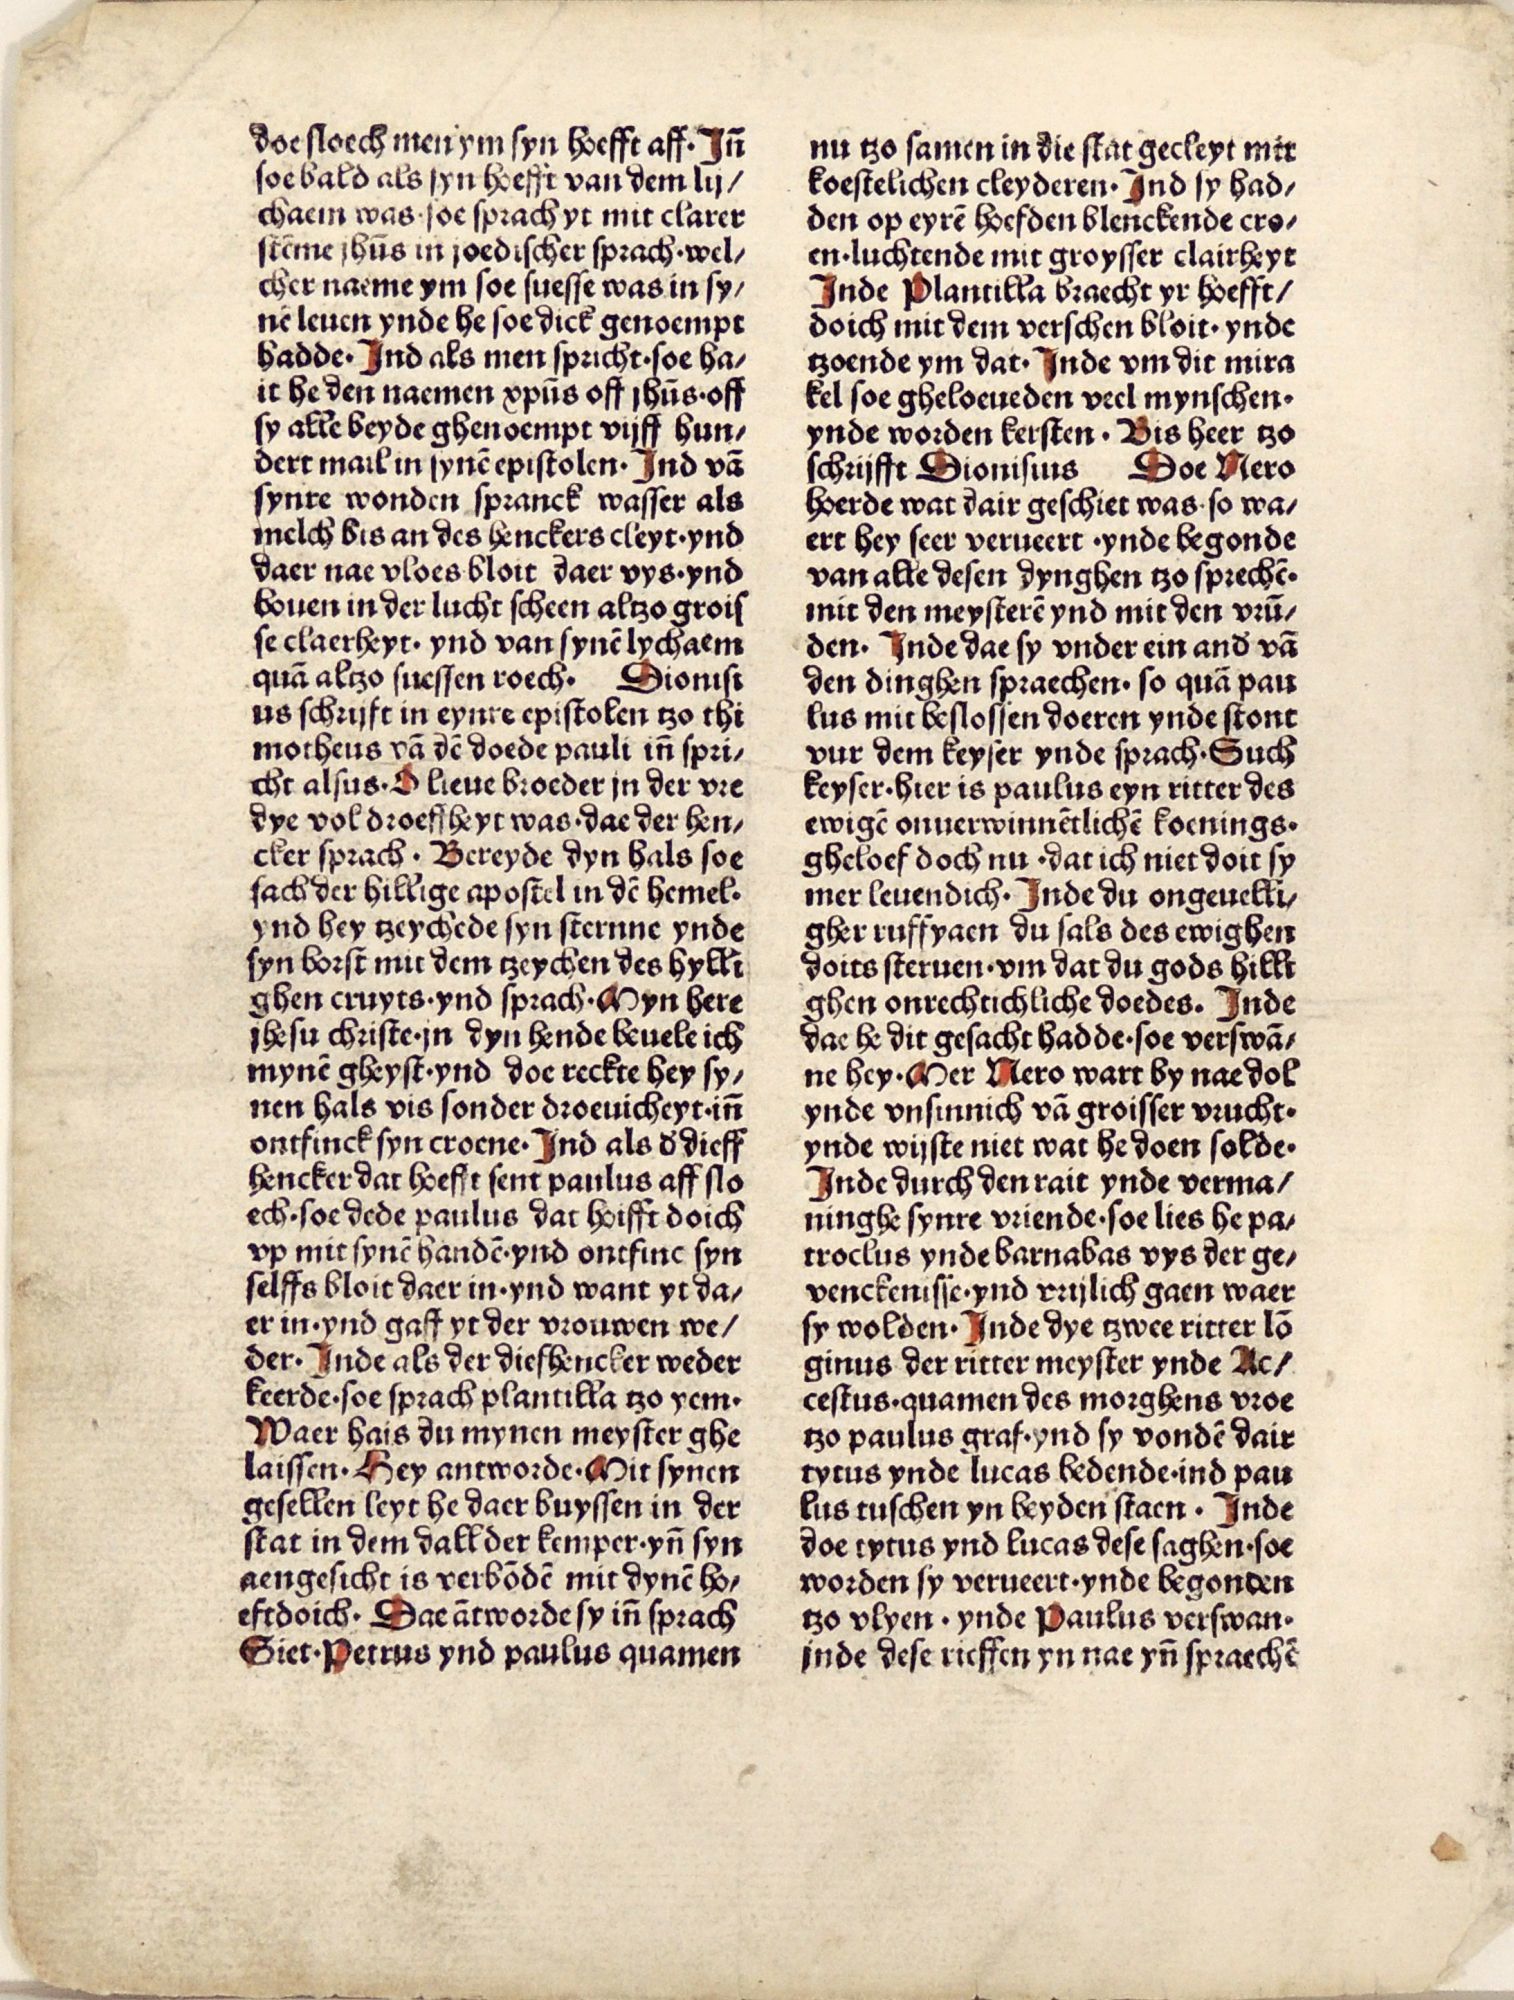 doe sloech men ym syn hoefft aff· Jn̄
soe bald als syn hoefft van dem lij/
chaem was·soe sprach yt mit clarer
stēme jhūs in joedischer sprach·wel/
cher naeme ym soe suesse was in sy/
nē leuen ynde he soe dick genoempt
hadde· Jnd als men spricht·soe ha/
it he den naemen xpūs off jhūs·off
sy alle beyde ghenoempt vijff hun/
dert mail in synē epistolen· Jnd vā
synre wonden spranck wasser als
melch bis an des henckers cleyt·ynd
daer nae vloes bloit daer vys·ynd
bouen in der lucht scheen altzo grois
se claerheyt· ynd van synē lychaem
quā altzo suessen roech· Dionisi
us schrijft in eynre epistolen tzo thi
motheus vā dē doede pauli in̄ spri/
cht alsus·O lieue broeder jn der vre
dye vol droeffheyt was·dae der hen/
cker sprach· Bereyde dyn hals soe
sach der hillige apostel in dē hemel·
ynd hey tzeychede syn sternne ynde
syn borst mit dem tzeychen des hylli
ghen cruyts·ynd sprach·Myn here
jhesu christe·jn dyn hende beuele ich
mynē gheyst·ynd doe reckte hey sy/
nen hals vis sonder droeuicheyt·in̄
ontfinck syn croene·Jnd als d̄ dieff
hencker dat hoefft sent paulus aff slo
ech·soe dede paulus dat hoifft doich
vp mit synē handē·ynd ontfinc syn
selffs bloit daer in·ynd want yt da/
er in·ynd gaff yt der vrouwen we/
der· Jnde als der diefhencker weder
keerde·soe sprach plantilla tzo yem·
Waer hais du mynen meyster ghe
laissen·Hey antworde·Mit synen
gesellen leyt he daer buyssen in der
stat in dem dall der kemper·yn̄ syn
aengesicht is verbōdē mit dynē ho/
eftdoich· Dae ātworde sy in̄ sprach
Siet·Petrus ynd paulus quamen
nu tzo samen in die stat gecleyt mit
koestelichen cleyderen·Jnd sy had/
den op eyrē hoefden blenckende cro/
en·luchtende mit groysser clairheyt
Jnde Plantilla braecht yr hoefft/
doich mit dem verschen bloit·ynde
tzoende ym dat· Jnde vm dit mira
kel soe gheloeueden veel mynschen·
ynde worden kersten· Bis heer tzo
schrijfft Dionisius Doe Nero
hoerde wat dair geschiet was·so wa/
ert hey seer verueert·ynde begonde
van alle desen dynghen tzo sprechē·
mit den meysterē ynd mit den vrū/
den· Jnde dae sy vnder ein and̄ vā
den dinghen spraechen·so quā pau
lus mit beslossen doeren ynde stont
vur dem keyser ynde sprach·Such
keyser·hier is paulus eyn ritter des
ewigē onuerwinnētlichē koenings·
gheloef doch nu·dat ich niet doit sy
mer leuendich· Jnde du ongeuelli/
gher ruffyaen du sals des ewighen
doits steruen·vm dat du gods hilli
ghen onrechtichliche doedes. Jnde
dae he dit gesacht hadde·soe verswā/
ne hey·Mer Nero wart by nae dol
ynde vnsinnich vā groisser vrucht·
ynde wijste niet wat he doen solde·
Jnde durch den rait ynde verma/
ninghe synre vriende·soe lies he pa/
troclus ynde barnabas vys der ge/
venckenisse·ynd vrijlich gaen waer
sy wolden· Jnde dye tzwee ritter lō
ginus der ritter meyster ynde Ac/
cestus·quamen des morghens vroe
tzo paulus graf·ynd sy vondē dair
tytus ynde lucas bedende·ind pau
lus tuschen yn beyden staen· Jnde
doe tytus ynd lucas dese saghen·soe
worden sy verueert·ynde begonden
tzo vlyen· ynde Paulus verswan·
jnde dese rieffen yn nae yn̄ spraechē